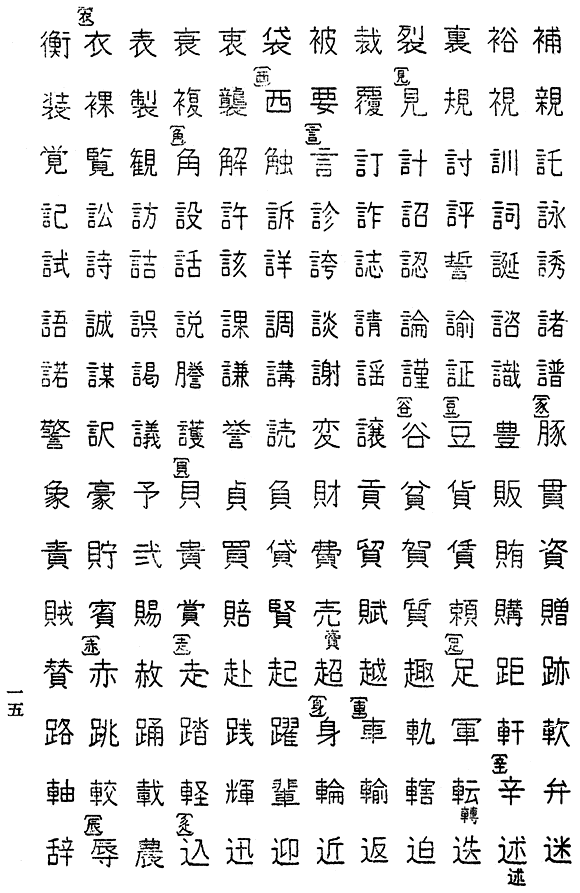 衣
衡衣表衰衷袋被裁裂裏裕補
西 見
装裸製複襲西要覆見規視親
角 言
覚覧観角解触言訂計討訓託
記訟訪設許訴診詐詔評詞詠
試詩詰話該詳誇誌認誓誕誘
語誠誤説課調談請論諭諮諸
諾謀謁謄謙講謝謡謹証識譜
谷 豆 豕
警訳議護誉読変譲谷豆豊豚
貝
象豪予貝貞負財貢貧貨販貫
責貯弐貴買貸費貿賀賃賄資
賊賓賜賞賠賢売賦質頼購贈
赤 走 足
賛赤赦走赴起超越趣足距跡
身 車
路跳踊踏践躍身車軌軍軒軟
辛
軸較載軽輝輩輪輸轄転辛弁
轉
辰
辞辱農込迅迎近返迫迭述迷
述
一五